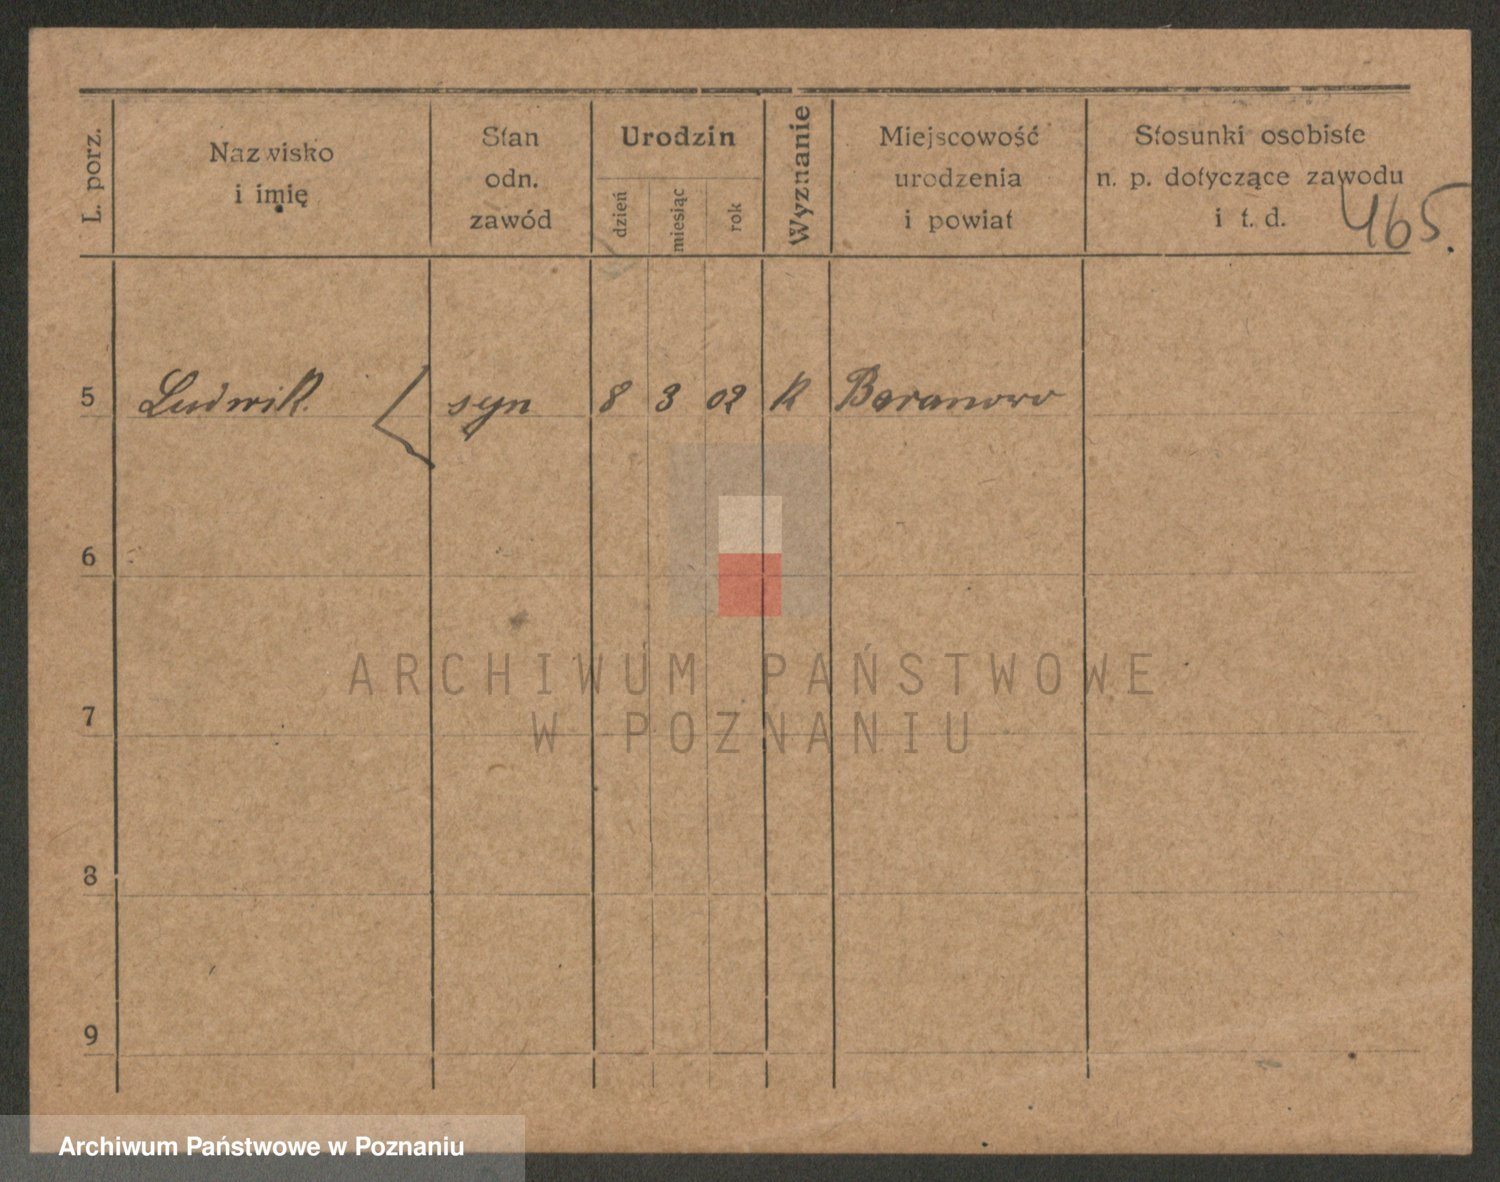 L. porz.
Nazwisko
i imię
Stan
odn.
zawód
Urodzin
dzień
miesiąc
rok
Wyznanie
Miejscowość
urodzenia
i powiat
Stosunki osobiste
n. p. dotyczące zawodu
i t. d.
465.
5 Ludwik syn 8 3 02 K Baranowo
6
7
8
9
ARCHIWUM PAŃSTWOWE
W POZNANIU
Archiwum Państwowe w Poznaniu